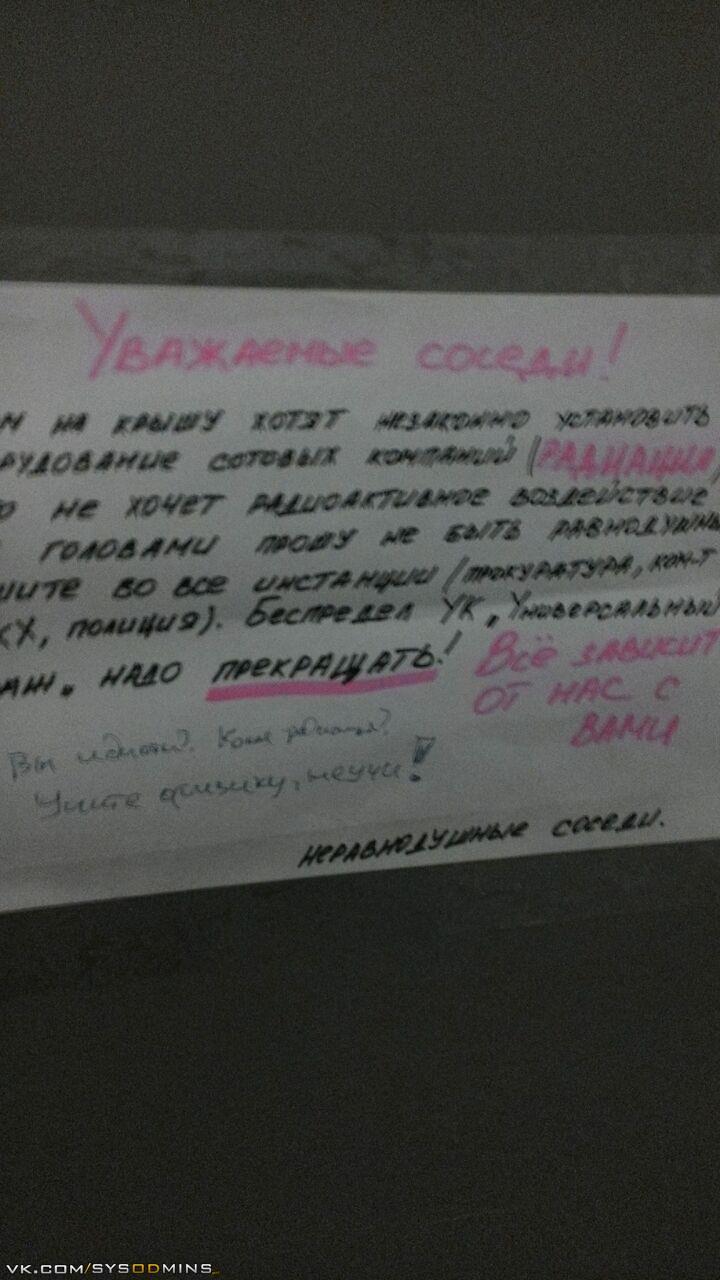 Уважаемые соседи!
м на крышу хотят незаконно установить
рудование сотовых компаний (радиация)
о не хочет радиоактивное воздействие
головами прошу не быть равнодушны
шите во все инстанции (прокуратура, ком-т
КХ, полиция). Беспредел УК „Универсальный
аж„ надо прекращать!
Всё зависит
от нас с
вами
Вы идиоты? Какая радиация?
Учите физику, неучи!
неравнодушные соседи.
VK.COM/SYSODMINS_